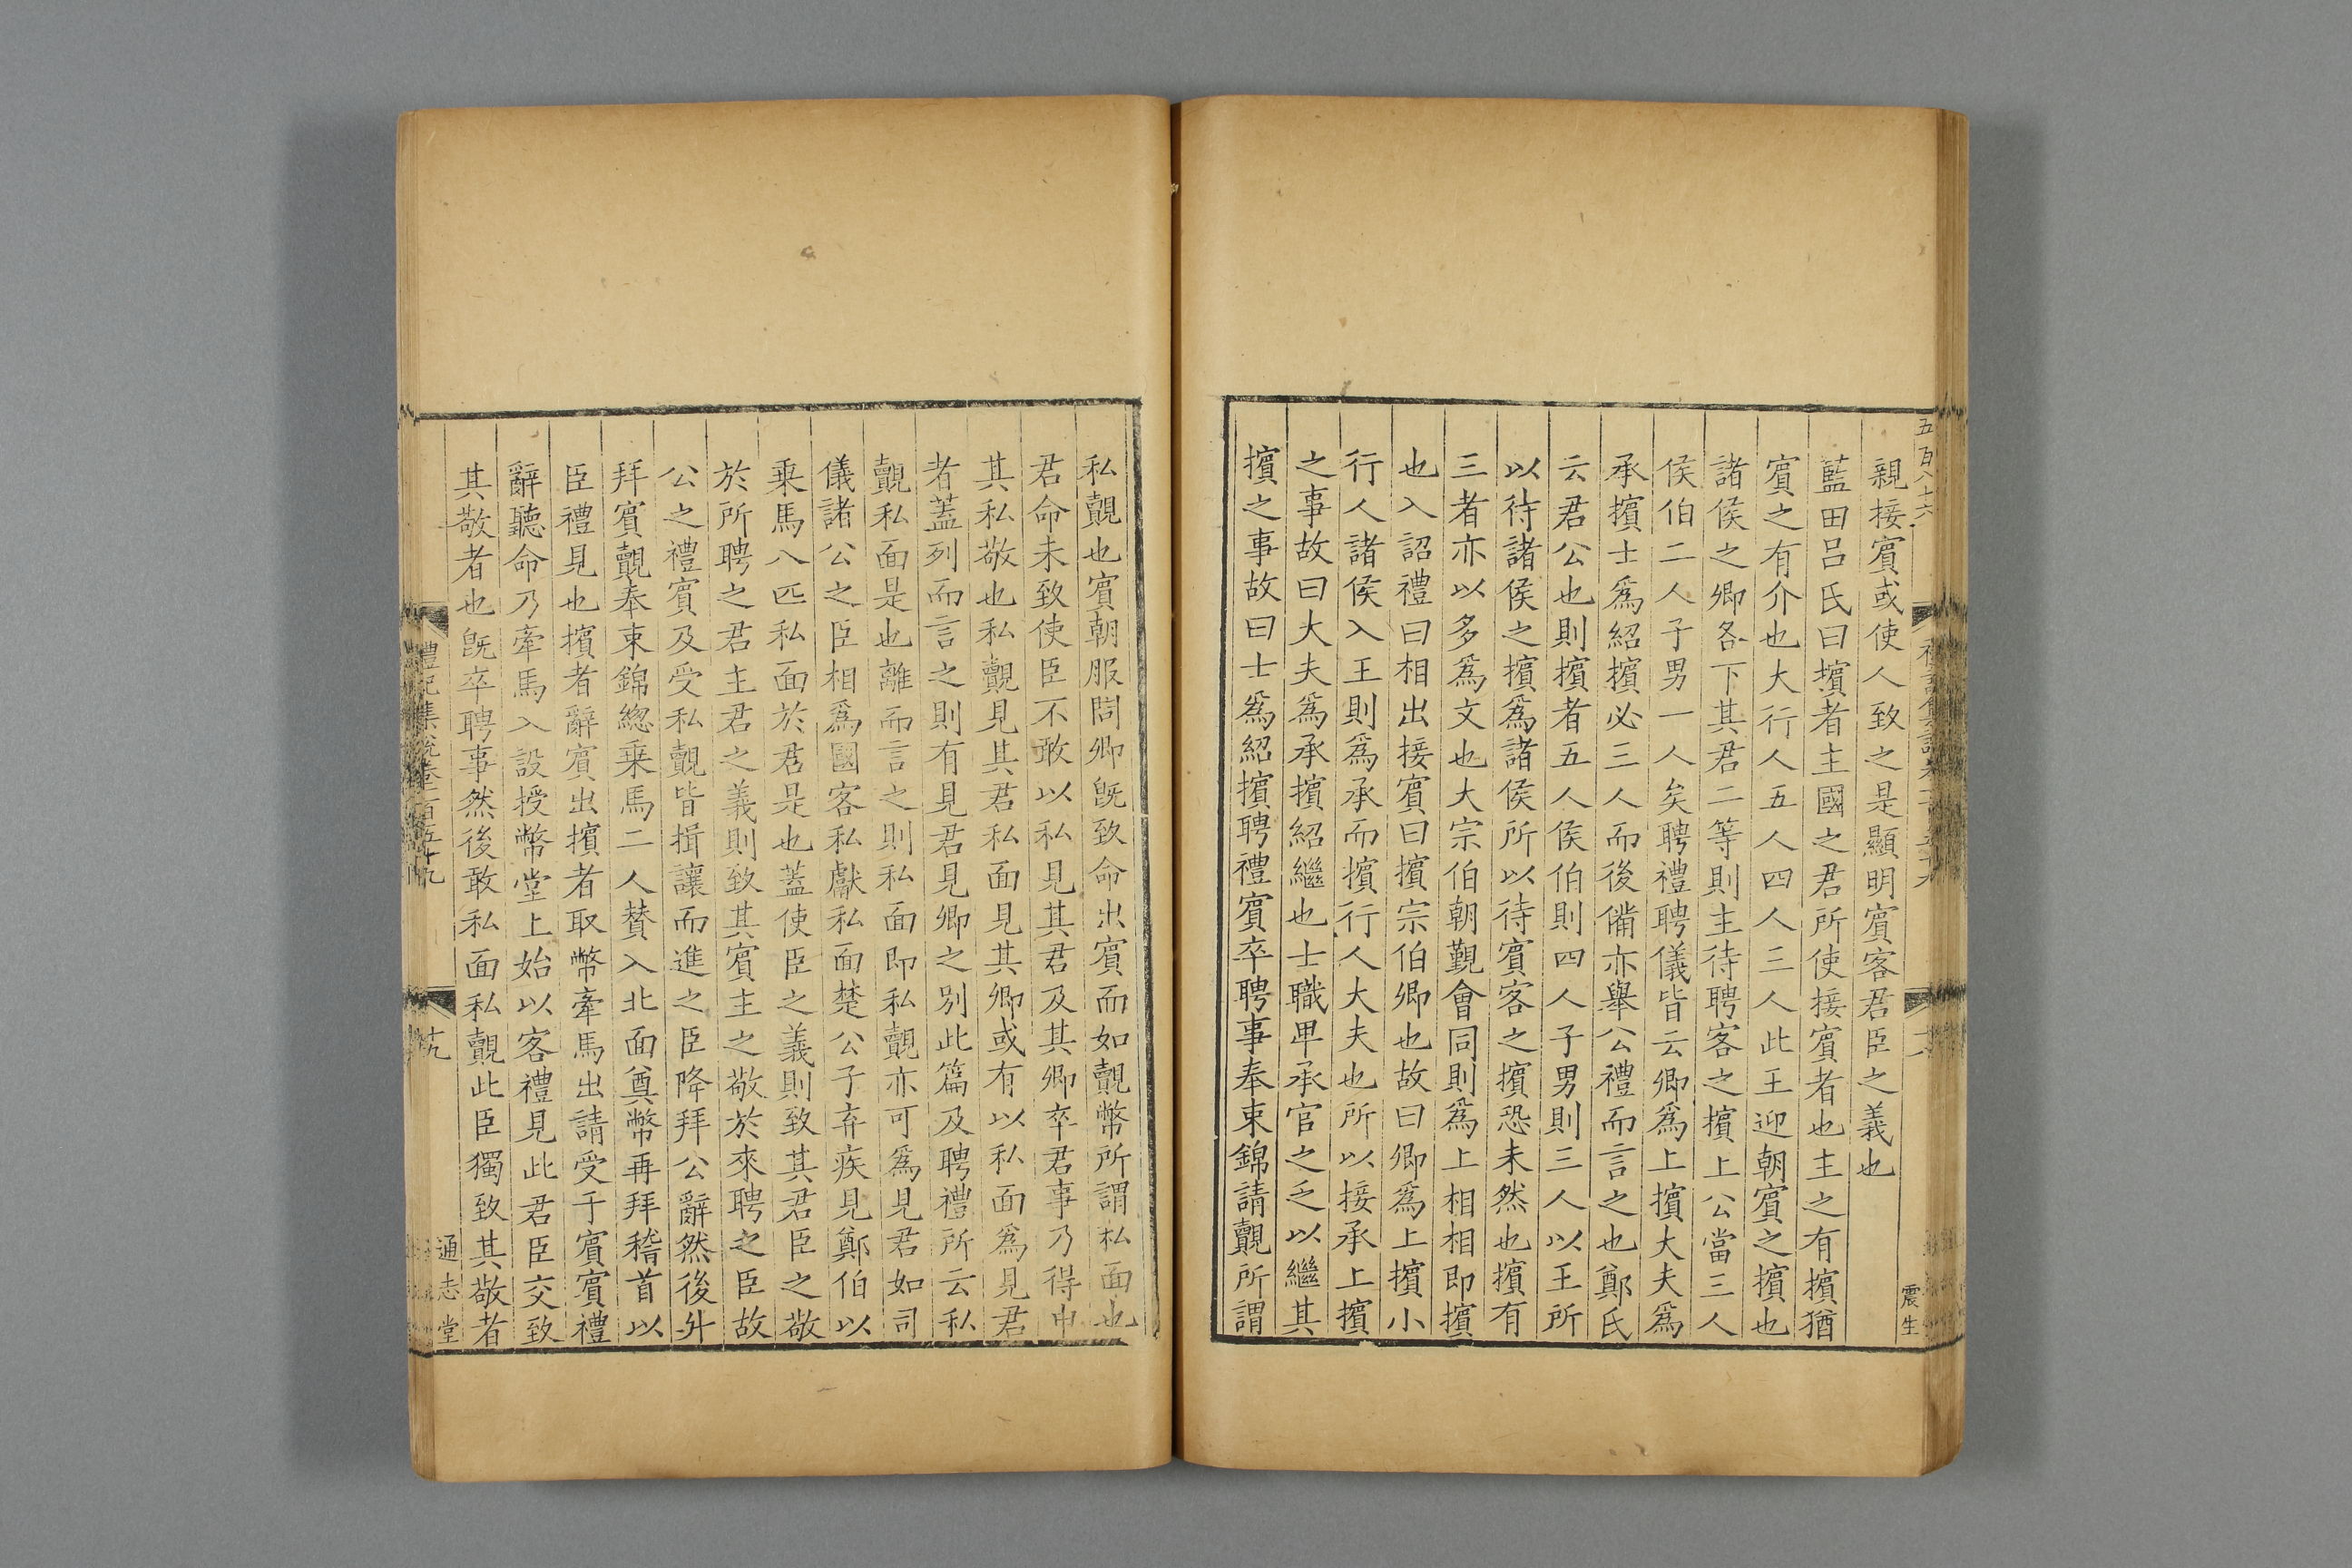 五百八十六
親接賔或使人致之是顯明賔客君臣之義也
藍田呂氏曰擯者主國之君所使接賔者也主之有擯猶
賔之有介也大行人五人四人三人此王迎朝賔之擯也
諸侯之卿各下其君二等則主待聘客之擯上公當三人
侯伯二人子男一人矣聘禮聘儀皆云卿爲上擯大夫爲
承擯士爲紹擯必三人而後備亦舉公禮而言之也鄭氏
云君公也則擯者五人侯伯則四人子男則三人以王所
以待諸侯之擯爲諸侯所以待賔客之擯恐未然也擯有
三者亦以多爲文也大宗伯朝覲會同則爲上相相即擯
也入詔禮曰相出接賔曰擯宗伯卿也故曰卿爲上擯小
行人諸侯入王則爲承而擯行人大夫也所以接承上擯
之事故曰大夫爲承擯紹繼也士職卑承官之乏以繼其
擯之事故曰士爲紹擯聘禮賔卒聘事奉束錦請覿所謂
震生
私覿也賔朝服問卿旣致命出賔而如覿幣所謂私面也
君命未致使臣不敢以私見其君及其卿卒君事乃得申
其私敬也私覿見其君私面見其卿或有以私面爲見君
者蓋列而言之則有見君見卿之别此篇及聘禮所云私
覿私面是也離而言之則私面即私覿亦可爲見君如司
儀諸公之臣相爲國客私獻私面楚公子弃疾見鄭伯以
乗馬八匹私面於君是也蓋使臣之義則致其君臣之敬
於所聘之君主君之義則致其賔主之敬於來聘之臣故
公之禮賔及受私覿皆揖讓而進之臣降拜公辭然後升
拜賔覿奉束錦緫乗馬二人賛入北面奠幣再拜稽首以
臣禮見也擯者辭賔出擯者取幣牽馬出請受于賔賔禮
辭聽命乃牽馬入設授幣堂上始以客禮見此君臣交致
其敬者也旣卒聘事然後敢私面私覿此臣獨致其敬者
禮記集說卷一百五十九
十九
通志堂